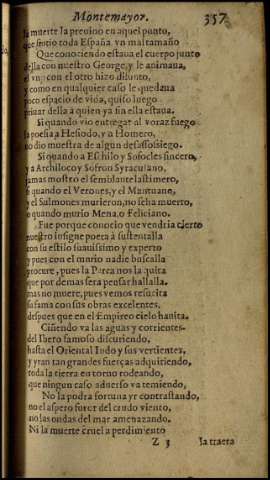 Montemayor. 357
la muerte la preuino en aquel punto,
que sintio toda España vn mal tamaño
Que conociendo estaua el cuerpo junto
della con nuestro George, y le animaua,
el vno con el otro hizo difunto,
y como en qualquier caso le quedaua
poco espacio de vida, quiso luego
priuar della à quien ya sin ella estaua.
Si quando vio entregar al voraz fuego
la poesia à Hesiodo, y à Homero,
no dio muestra de algun desassossiego.
Si quando a Eschilo y Sofocles sincero,
y a Archiloco y Sofron Syraculano,
jamas mostrò el semblante lastimero,
si quando el Verones, y el Mantuano,
y el Sulmones murieron, no se ha muerto,
o quando murio Mena, o Feliciano.
Fue porque conocio que vendria cierto
nuestro insigne poeta à sustentalla
con su estilo suauissimo y experto
y pues con el murio nadie buscalla
procure, pues la Parca nos la quita
que por demas sera pensar hallalla.
mas no muere, pues vemos resucita
su fama con sus obras excelentes,
despues que en el Empireo cielo habita.
Ciñendo va las aguas y corrientes
del Ibero famoso discurriendo,
hasta el Oriental Indo y sus vertientes,
y yran tan grandes fuerças adquiriendo,
toda la tierra en torno rodeando,
que ningun caso aduerso va temiendo,
No la podra fortuna yr contrastando,
no el aspero furor del crudo viento,
no las ondas del mar amenazando.
Ni la muerte cruel a perdimiento
Z 3 la traera